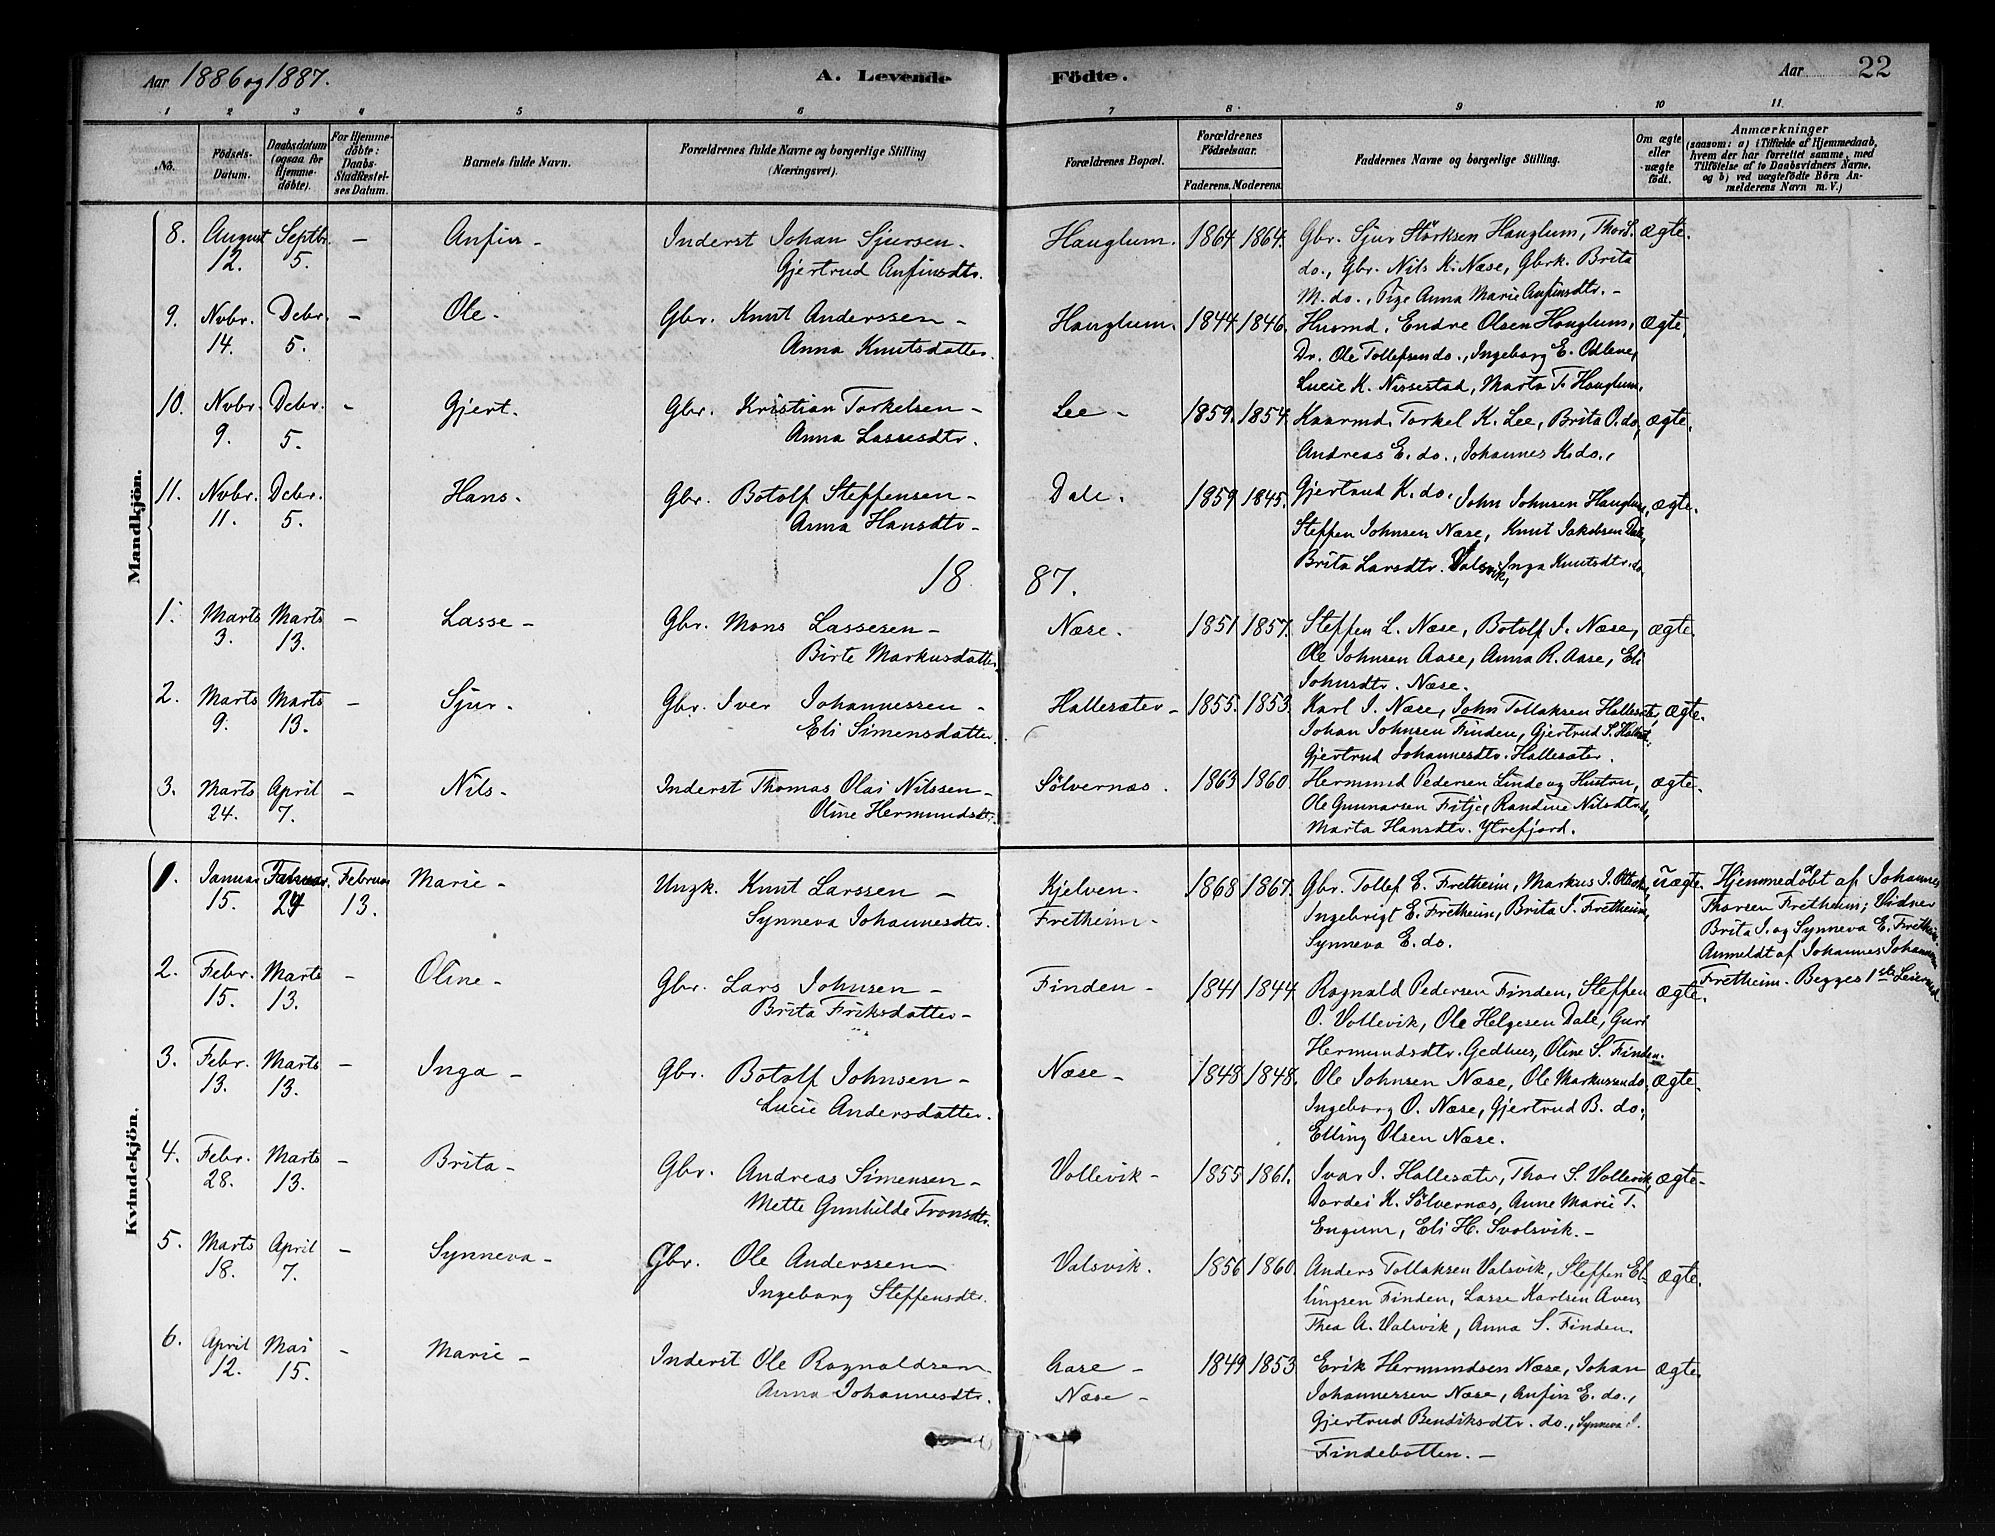 Aar 1886 og 1887. A. Levende Födte. Aar 22
1 2 3 4 5 6 7 8 9 10 11.
No. Födsels-Datum. Daabsdatum (ogsaa for Hjemme-döbte). For Hjemme-döbte: Daabs-Stadfæstel-ses Datum. Barnets fulde Navn. Forældrenes fulde Navne og borgerlige Stilling (Næringsvei). Forældrenes Bopæl. Forældrenes Födselsaar. Faderens. Moderens. Faddernes Navne og borgerlige Stilling. Om ægte eller uægte födt. Anmærkninger (saasom: a) i Tilfælde af Hjemmedaab, hvem der har forrettet samme, med Tilföielse af to Daabsvidners Navne, og b) ved uægtefödte Börn An-melderens Navn m. V.)
Mandkjön.
8. August Septbr. - Anfin - Inderst Johan Sjursen - Hauglum. 1864. 1864. Gbr. Sjur Störksen Hauglum, Thor S. ægte.
12. 5. Gjertrud Anfinsdtr. do., Gbr. Nils K. Næse, Gbrk. Brita
M. do., Pige Anna Marie Anfinsdtr. -
9. Nvbr. Debr. - Ole - Gbr. Knut Anderssen - Hauglum. 1844. 1846. Husmd. Endre Olsen Hauglum, ægte.
14. 5. Anna Knutsdatter. Dr. Ole Tollefsen do., Ingeborg E. Odlene,
Lucie K. Nissestad, Marta T. Hauglum.
10. Nvbr. Debr. - Gjert. Gbr. Kristian Torkelsen - Lee - 1859. 1854. Kaarmd. Torkel K. Lee, Brita O. do, ægte.
9. 5. Anna Lassesdtr. Andreas E. do., Johannes K. do.,
11. Nvbr. Debr. Hans - Gbr. Botolf Steffensen - Dale. 1859 1845. Gjertrud K. do. John Johnsen Hauglum, ægte.
11. 5. Anna Hansdtr - Steffen Johnsen Næse, Knut Jakobsen Dale,
Brita Larsdtr. Valsvik, Inga Knutsdtr. do.
18 87.
1. Marts Marts - Lasse - Gbr. Mons Lassesen - Næse. 1851 1857. Steffen L. Næse, Botolf J. Næse, ægte.
3. 13. Birte Markusdatter Ole Johnsen Aase, Anna R. Aase, Eli
Johnsdtr. Næse.
2. Marts Marts - Sjur - Gbr. Iver Johannessen - Hallesæter - 1855. 1853. Karl I. Næse, John Tollaksen Hallesæter, ægte.
9. 13. Eli Simensdatter. Johan Johnsen Finden, Gjertrud S.
Gjertrud Johannesdtr. Hallesæter.
3. Marts April - Nils - Inderst Thomas Olai Nilssen - Sölvernæs. 1863 1860. Hermund Pedersen Linde og Hustru, ægte.
24. 7. Oline Hermundsdtr. Ole Gunnarsen Fitje, Randine Nilsdtr. do,
Marta Hansdtr. Ytrefjord.
Kvindekjön.
1. Januar Februar Marie - Ungk. Knut Larssen - Kjelven - 1868 1867. Gbr. Tollef E. Fretheim, Markus J. uægte. Hjemmedöbt af Johannes
15. 24 13. Synneva Johannesdtr. Fretheim - Ingebrigt E. Fretheim, Brita J. Fretheim, Thorsen Fretheim; Vidner
Synneva E. do. Brita J. og Synneva E. Fretheim.
Anmeldt af Johannes
2. Febr. Marts - Oline - Gbr. Lars Johnsen - Finden - 1841 1844. Ragnald Pedersen Finden, Steffen ægte. Fretheim. Begges 1ste Leiermaal
15. 13. Brita Eriksdatter - O. Vollevik, Ole Helgesen Dale, Guri
Hermundsdtr. Gedhus, Oline S. Finden.
3. Febr. Marts - Inga - Gbr. Botolf Johnsen - Næse - 1848 1848. Ole Johnsen Næse, Ole Markussen do, ægte.
13. 13. Lucie Andersdatter. Ingeborg O. Næse, Gjertrud B. do,
Elling Olsen Næse.
4. Febr. Marts - Brita - Gbr. Andreas Simensen - Vollevik - 1855 1861. Ivar I. Hallesæter, Thor S. Vollevik, ægte.
28. 13. Mette Gunhilde Tronsdtr. Dordei K. Sölvernæs, Anne Marie T.
Engum, Eli H. Svolsvik. -
5. Marts April - Synneva - Gbr. Ole Anderssen - Valsvik. 1856 1860. Anders Tollaksen Valsvik, Steffen El- ægte.
18. 7. Ingeborg Steffensdtr. lingsen Finden, Lasse Karlsen
Thea A. Valsvik, Anna S. Finden.
6. April Mai - Marie - Inderst Ole Ragnaldsen Aase - 1849 1853 Erik Hermundsen Næse, Johan ægte.
12. 15. Anna Johannesdtr. Næse - Johannessen Næse, Anfin E. do.,
Gjertrud Bendiksdtr. do., Synneva J.
Findebotten. -